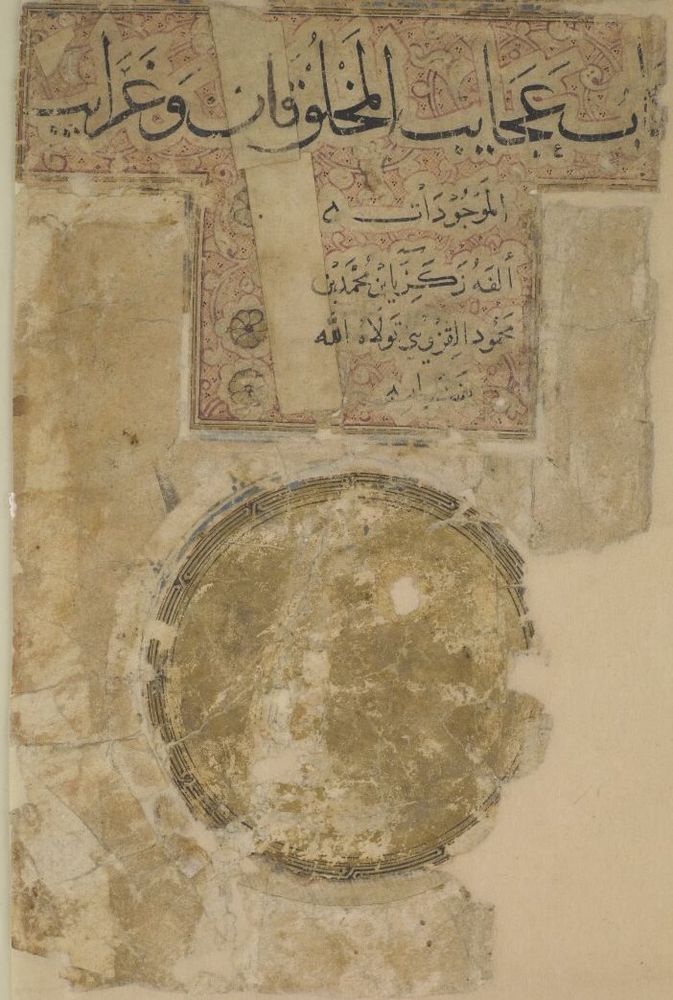 ـاب عجايب المخلوقات وغرايب
المَوْجُوْدَاتْ
ألفَهُ زكريا بن محمد بن
محمود القزويني تولاه الله